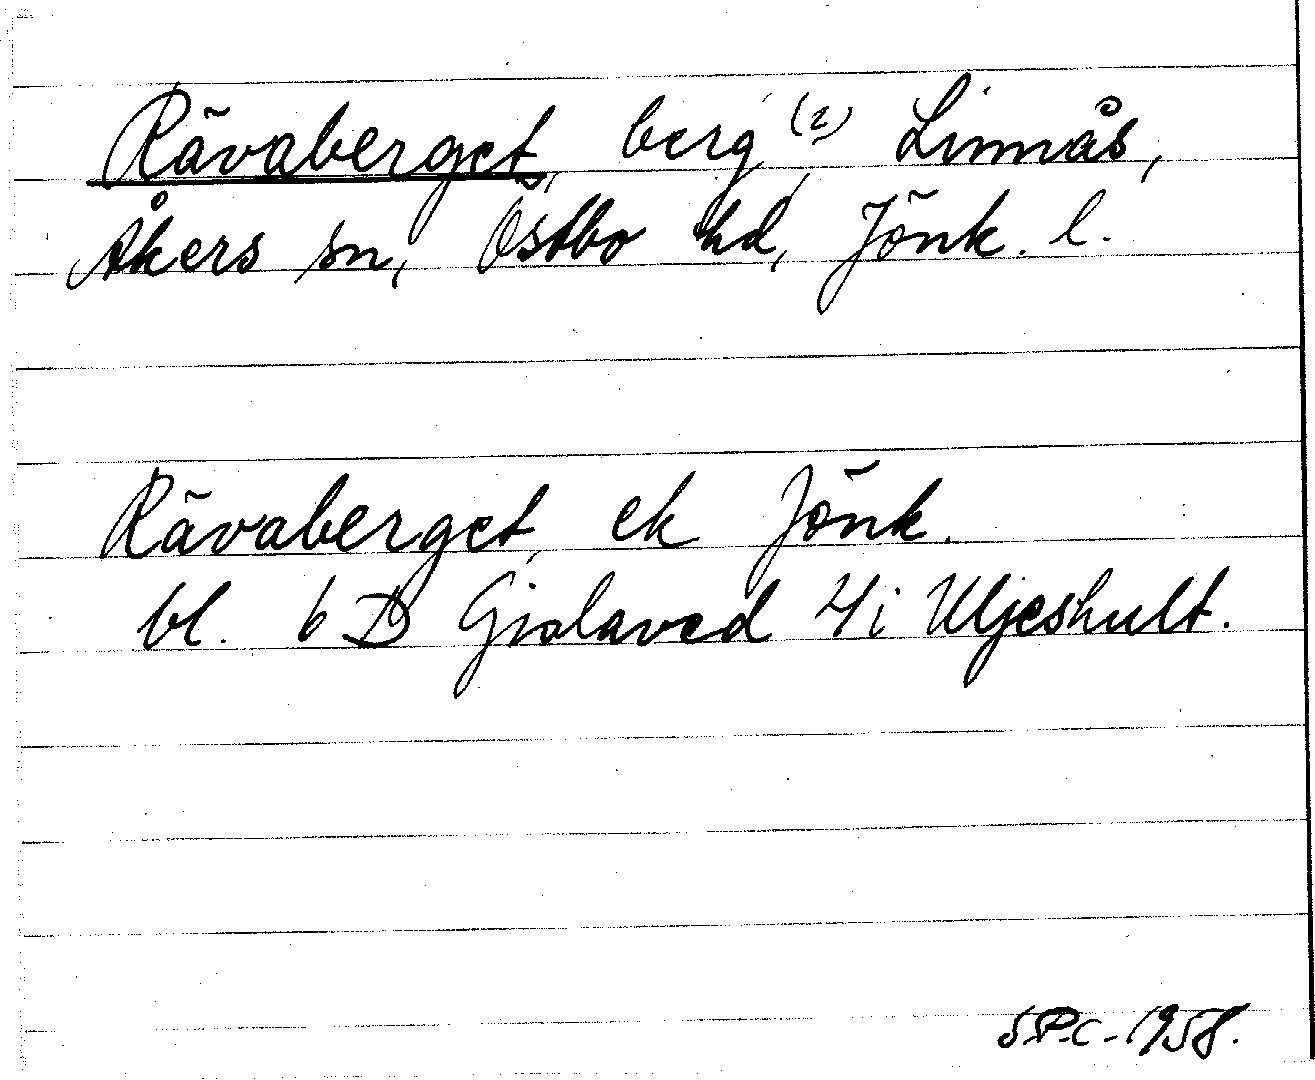 Rävaberget, berg (2), Linnås,
Åkers sn, Östbo hd, Jönk. l.
Rävaberget, ek Jönk.
bl. 6 D Gislaved 4i Uljeshult.
S.P.C. 1958.